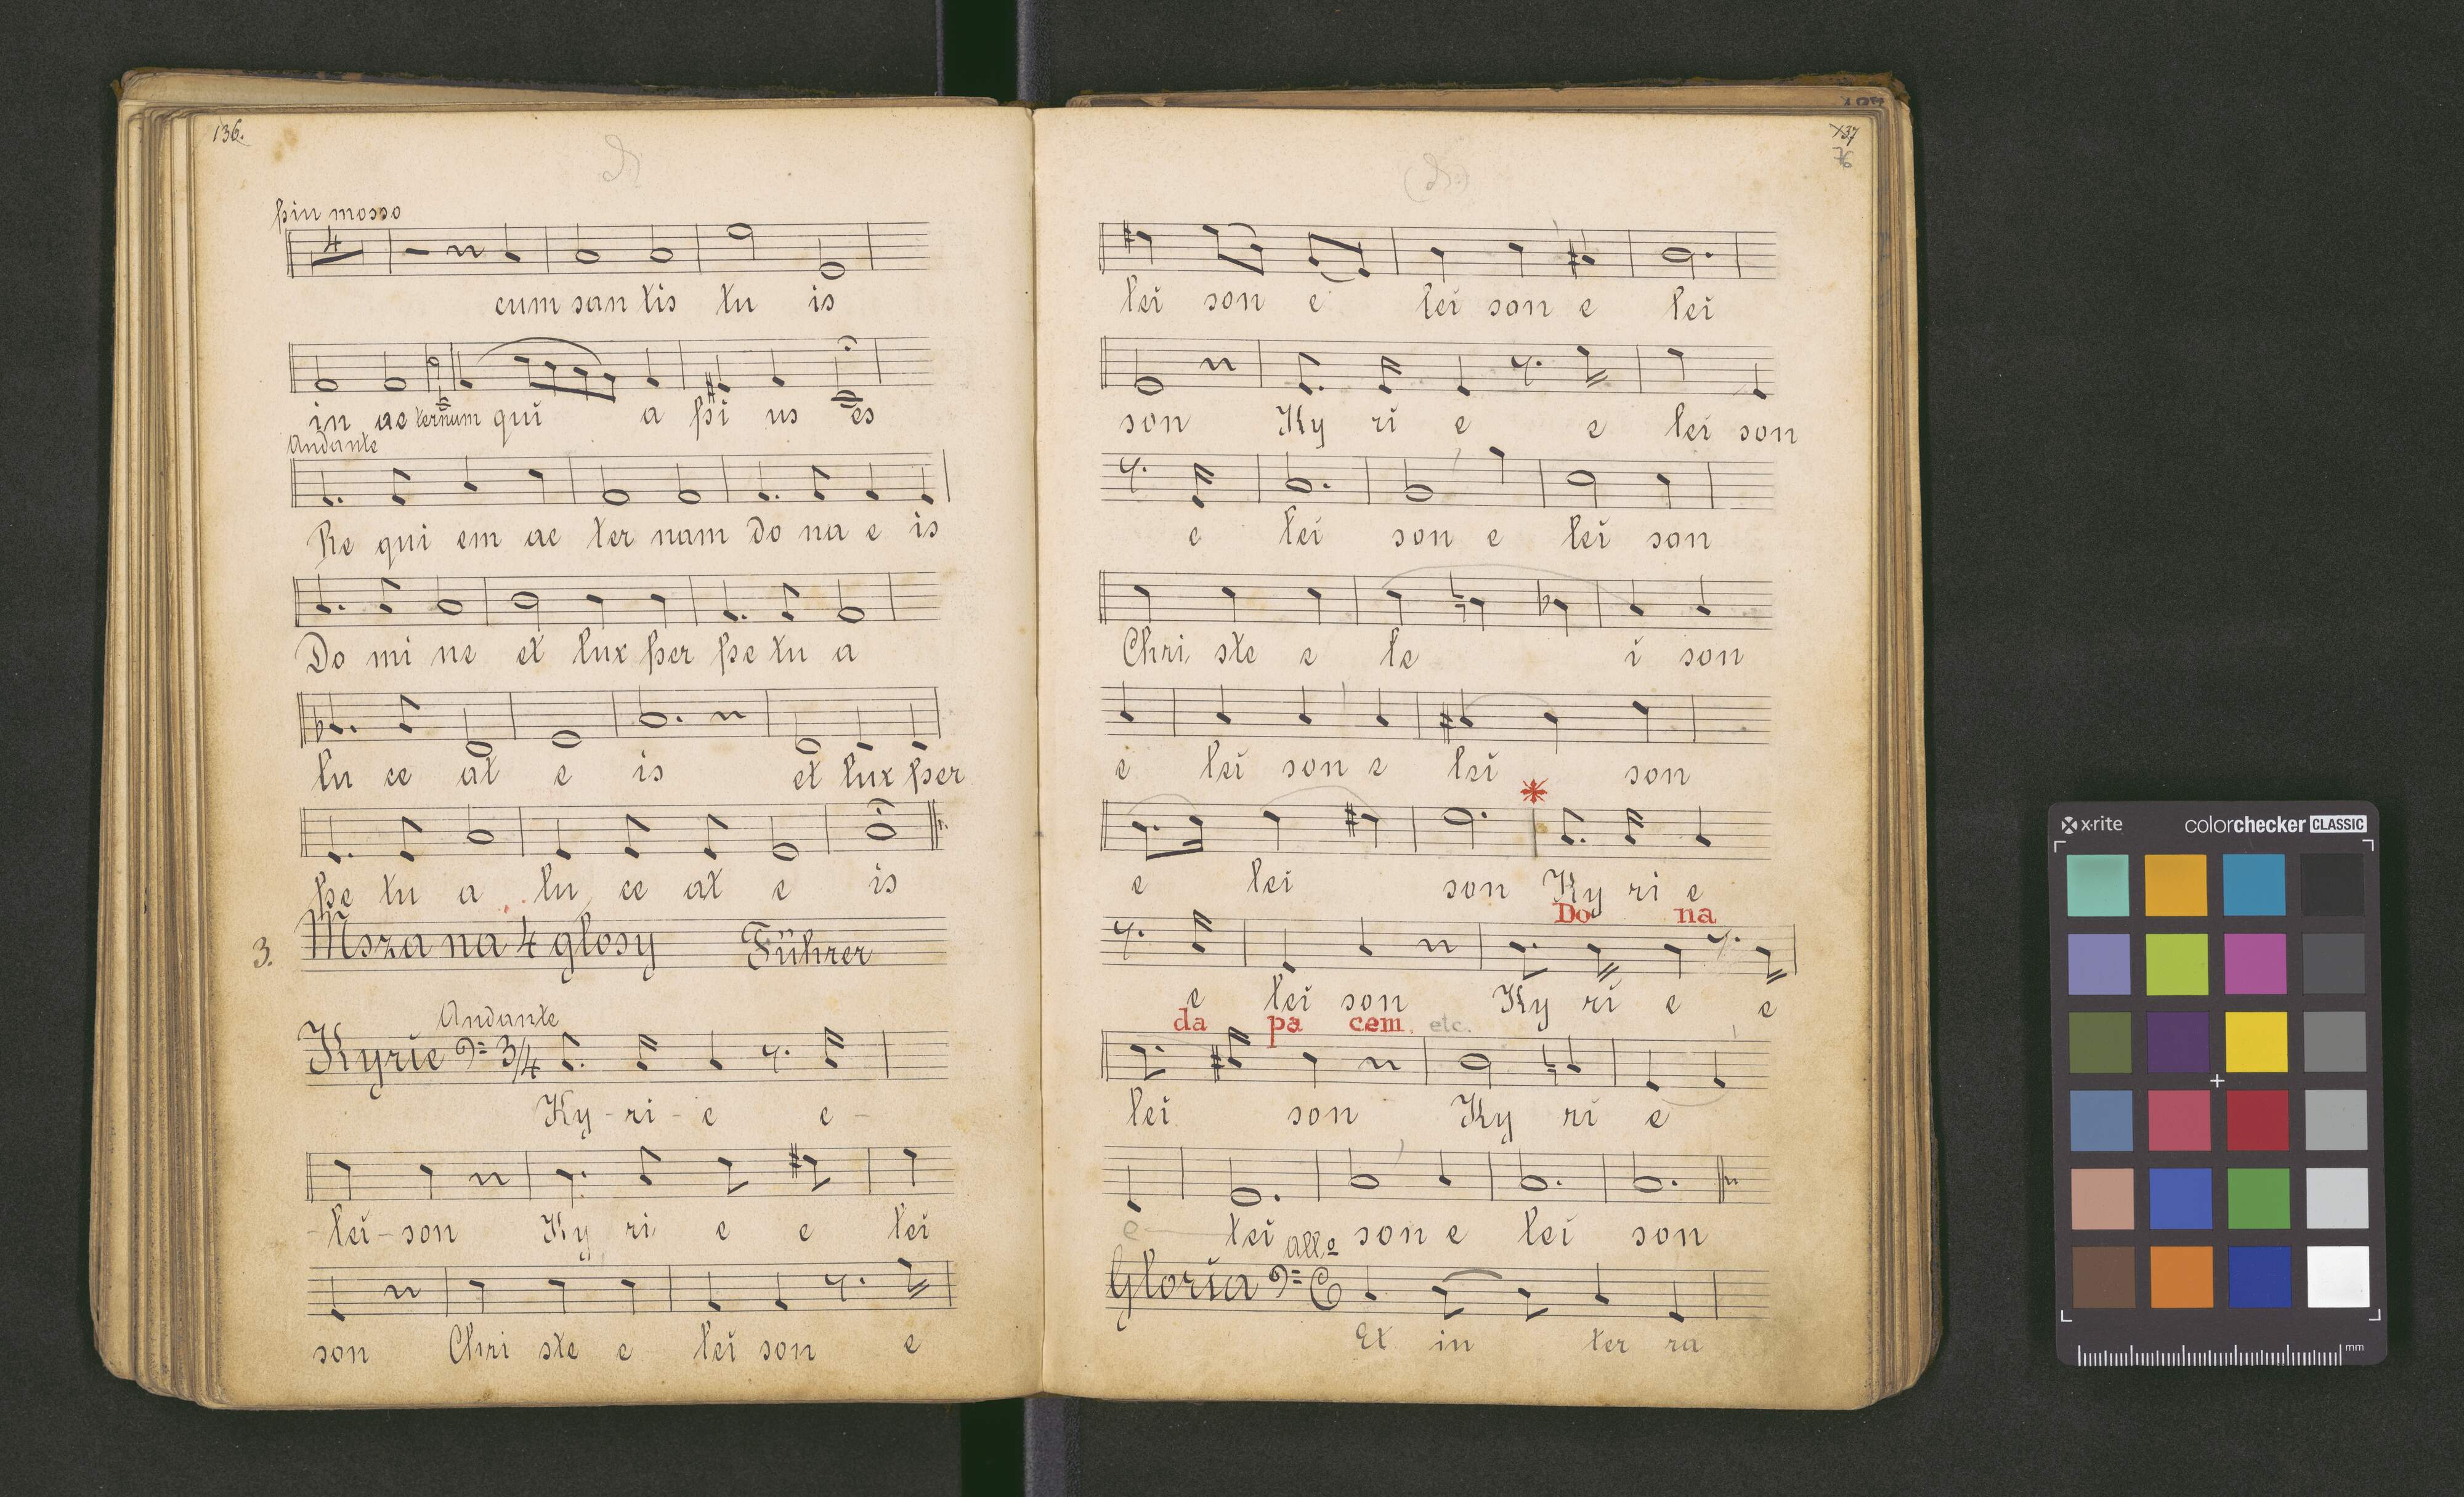 136.
piu mosso
4
cum san tis tu is
in ae ternum qui a pi us es
Andante
Re qui em ae ter nam Do na e is
Do mi ne et lux per pe tu a
lu ce at e is et lux per
pe tu a lu ce at e is
3. Msza na 4 głosy Führer
Andante
Kyrie 3/4
Ky - ri - e e -
- lei - son Ky ri e e lei
son Chri ste e lei son e
137
76
lei son e lei son e lei
son Ky ri e e lei son
e lei son e lei son
Chri ste e le i son
e lei son e lei son
e lei son Ky ri e
Do na
e lei son Ky ri e e
da pa cem. etc.
lei son Ky ri e
e lei son e lei son
allo
Gloria C
Et in ter ra
x·rite colorchecker CLASSIC
mm